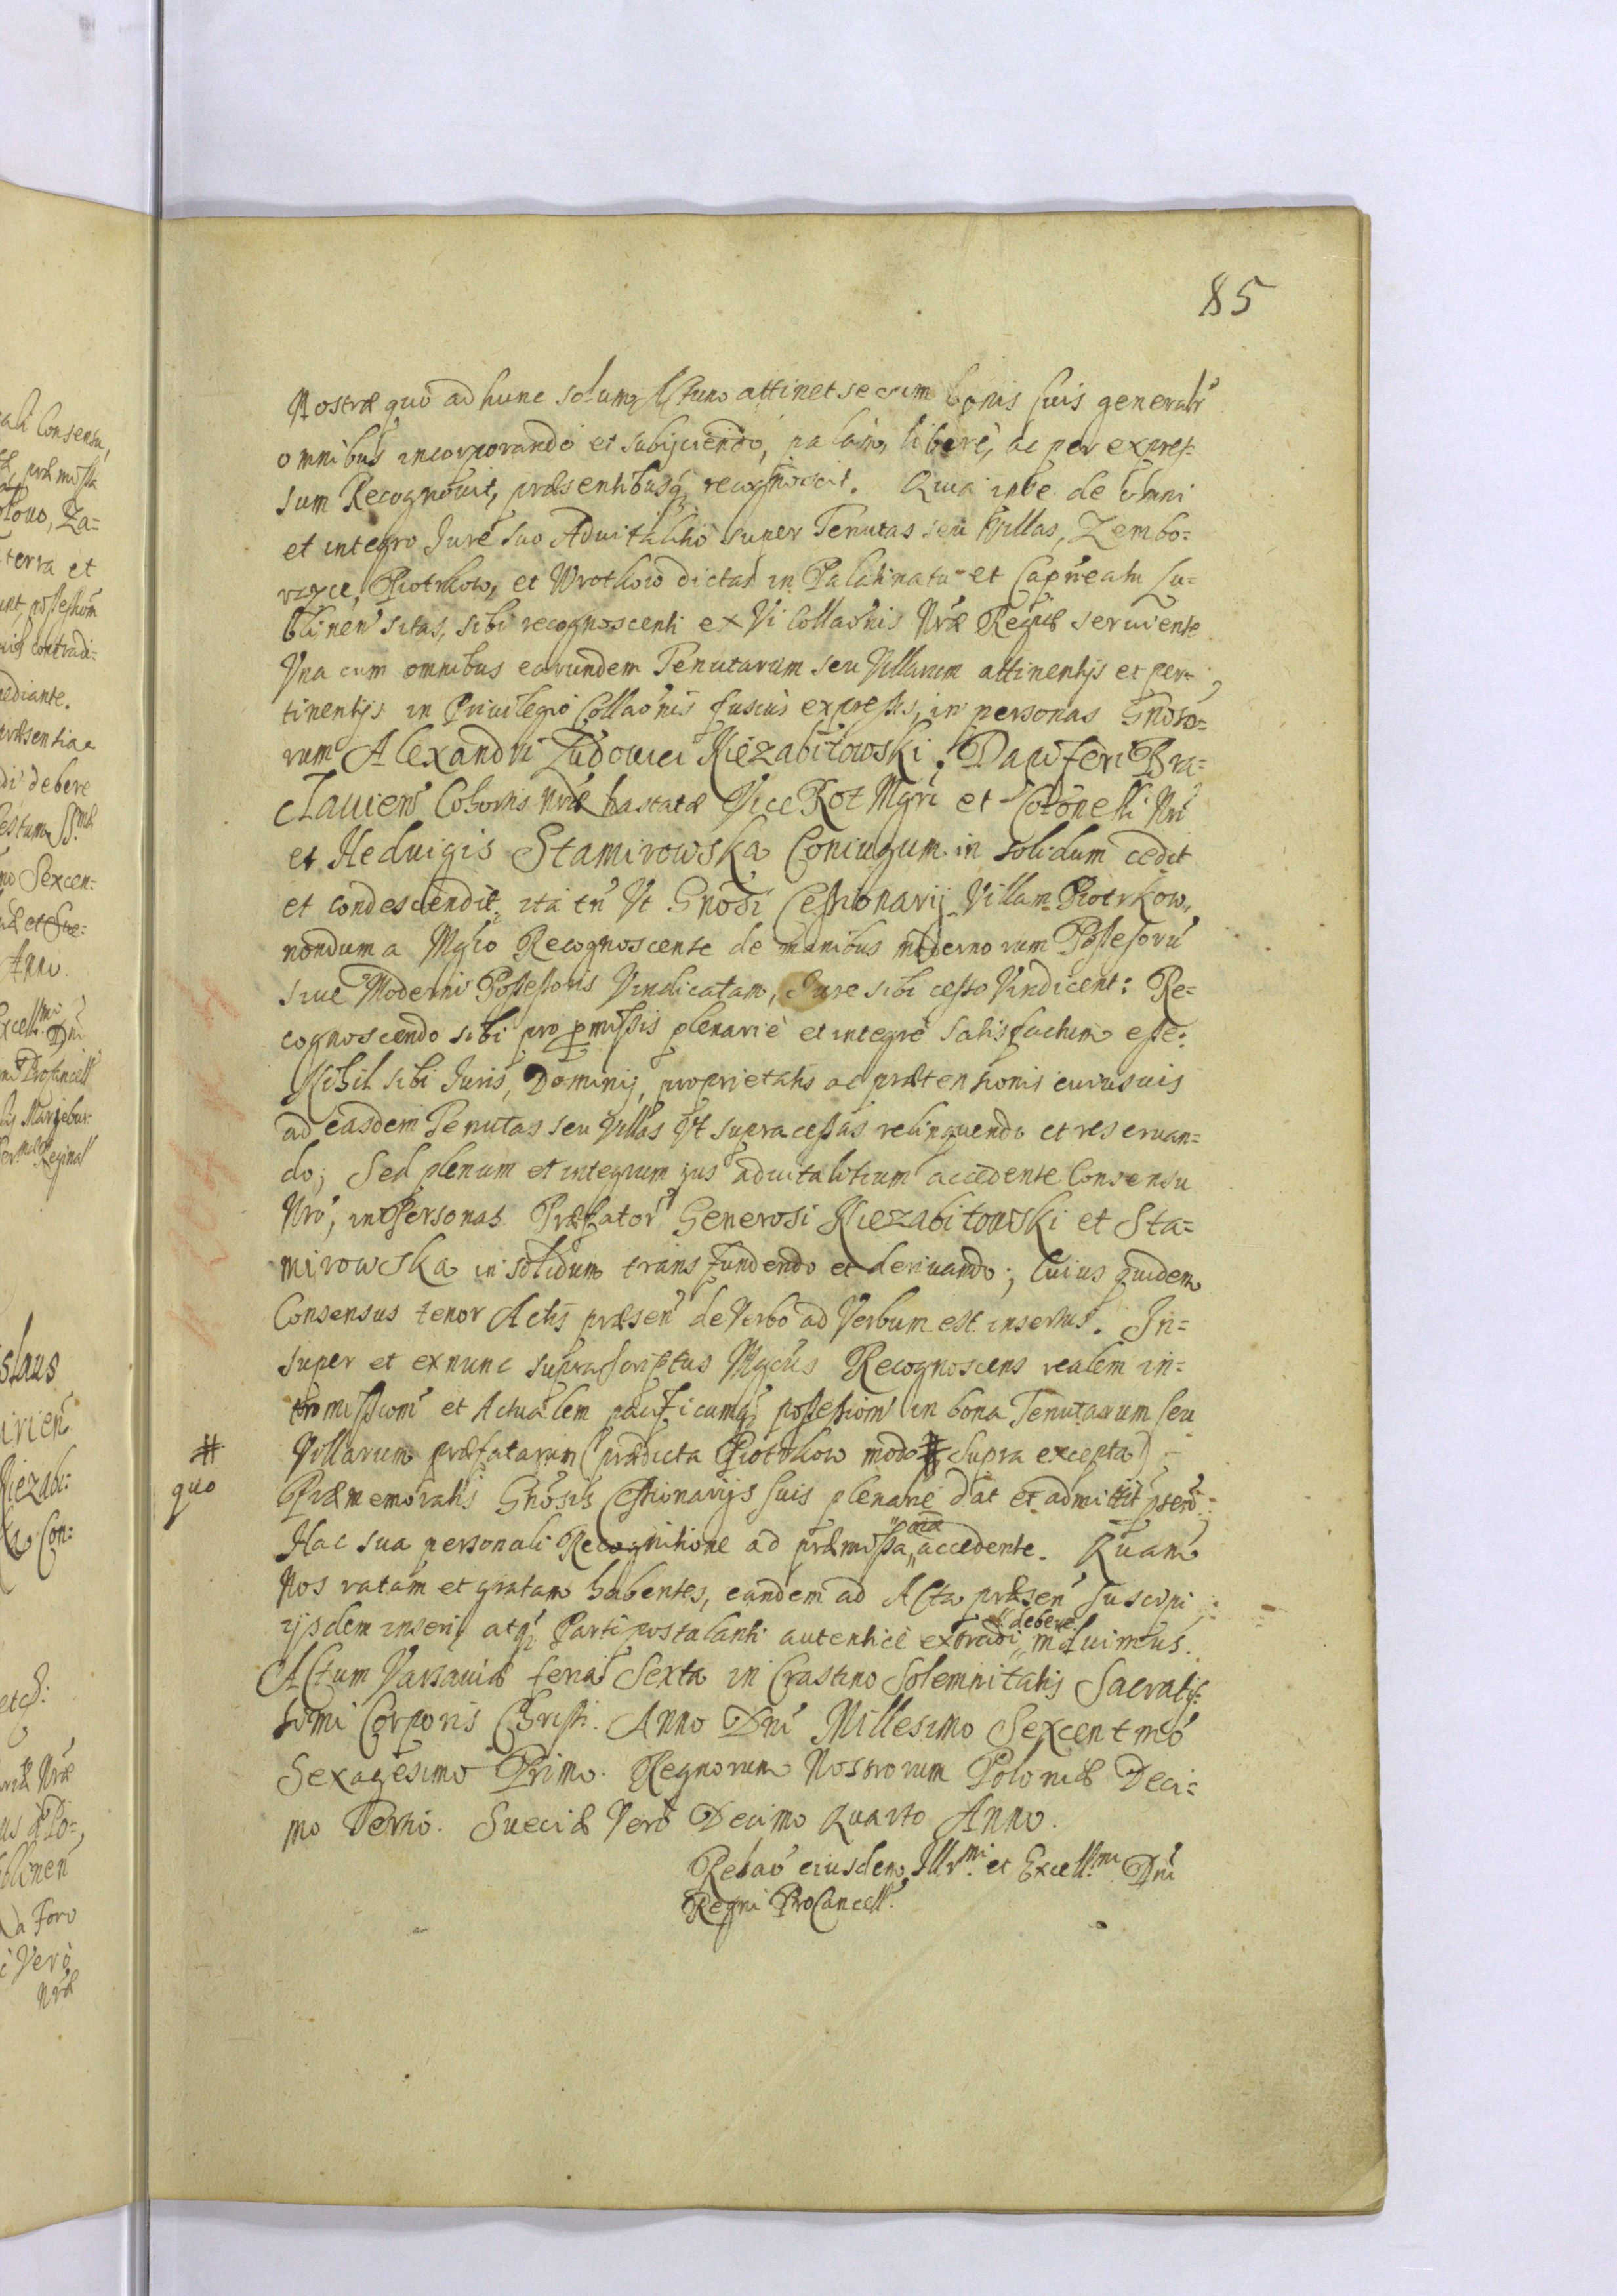 85
Nostræ quò ad hunc solum Actum attinet se cum bonis suis generalr
omnibus incorporando et subijciendo, palàm, liberè, ac per expres-
sum Recognovit, præsentibusq; recognoscit. Quia ipse de omni
et integro Jure suo Advitalitio super Tenutas seu Villas, Zembo=
rzyce, Piotrkow, et Wrotkow dictas in Palatinatu et Capneatu Lu=
blinen sitas, sibi recognoscenti ex Vi Collaonis Nræ Regiæ seruiente
Vna cum omnibus earundem Tenutarum seu Villarum attinentijs et per-
tinentijs in Priuilegio Collaonis fusius expressis, in personas Gnoso=
rum Alexandri Ludouici Niezabitowski, Dapiferi Bra=
clauien Cohortis Nræ hastatæ Vice Rot Mgri et Colonelli Nri
et Heduigis Stamirowska Coniugum in solidum cedit
et condescendit, ita tn Vt Gnosi Cessionarij Villam Piotrkow,
nondum a Mgfco Recognoscente de manibus modernorum Possessorũ
siue Moderni Possessoris Vindicatam, Jure sibi cesso Vindicent: Re=
cognoscendo sibi pro pmissis plenariè et integrè satisfactum esse:
Nihil sibi Juris, Dominij, proprietatis ac prætensionis cuiusuis
ad easdem Tenutas seu Villas Vt supra cessas relinquendo et reseruan=
do; Sed plenum et integrum jus aduitalitium accedente Consensu
Nro, in Personas Præfator Generosi Niezabitowski et Sta=
mirowska in solidum transfundendo et deriuando; Cuius quidem
Consensus tenor Actis præsen de Verbo ad Verbum est insertus. In=
super et exnunc suprascriptus Mgcus Recognoscens realem in=
tromissionē et Actualem pacificumq; possessionē in bona Tenutarum seu
# Villarum præfatarum (prædicta Piotrkow modo # supra excepta)
quo Præmemoratis Gnosis Cessionarijs suis plenariè dat et admittit psen
Hac sua personali Recognitione ad præmissa " oīa " accedente. Quam
Nos ratam et gratam habentes, eandem ad Acta præsen suscipi
ijsdem inseri, atq; Parti postulanti autenticè extradi " debere " maluimus.
Actum Varsauiæ feria Sexta in Crastino Solemnitatis Sacratis-
simi Corporis Christi. Anno Dni Millesimo Sexcentmo
Sexagesimo Primo. Regnorum Nostrorum Poloniæ Deci=
mo Tertio. Sueciæ Verò Decimo Quarto Anno.
Relao eiusdem Illr.mi et Excell.mi Dni
Regni ProCancell.